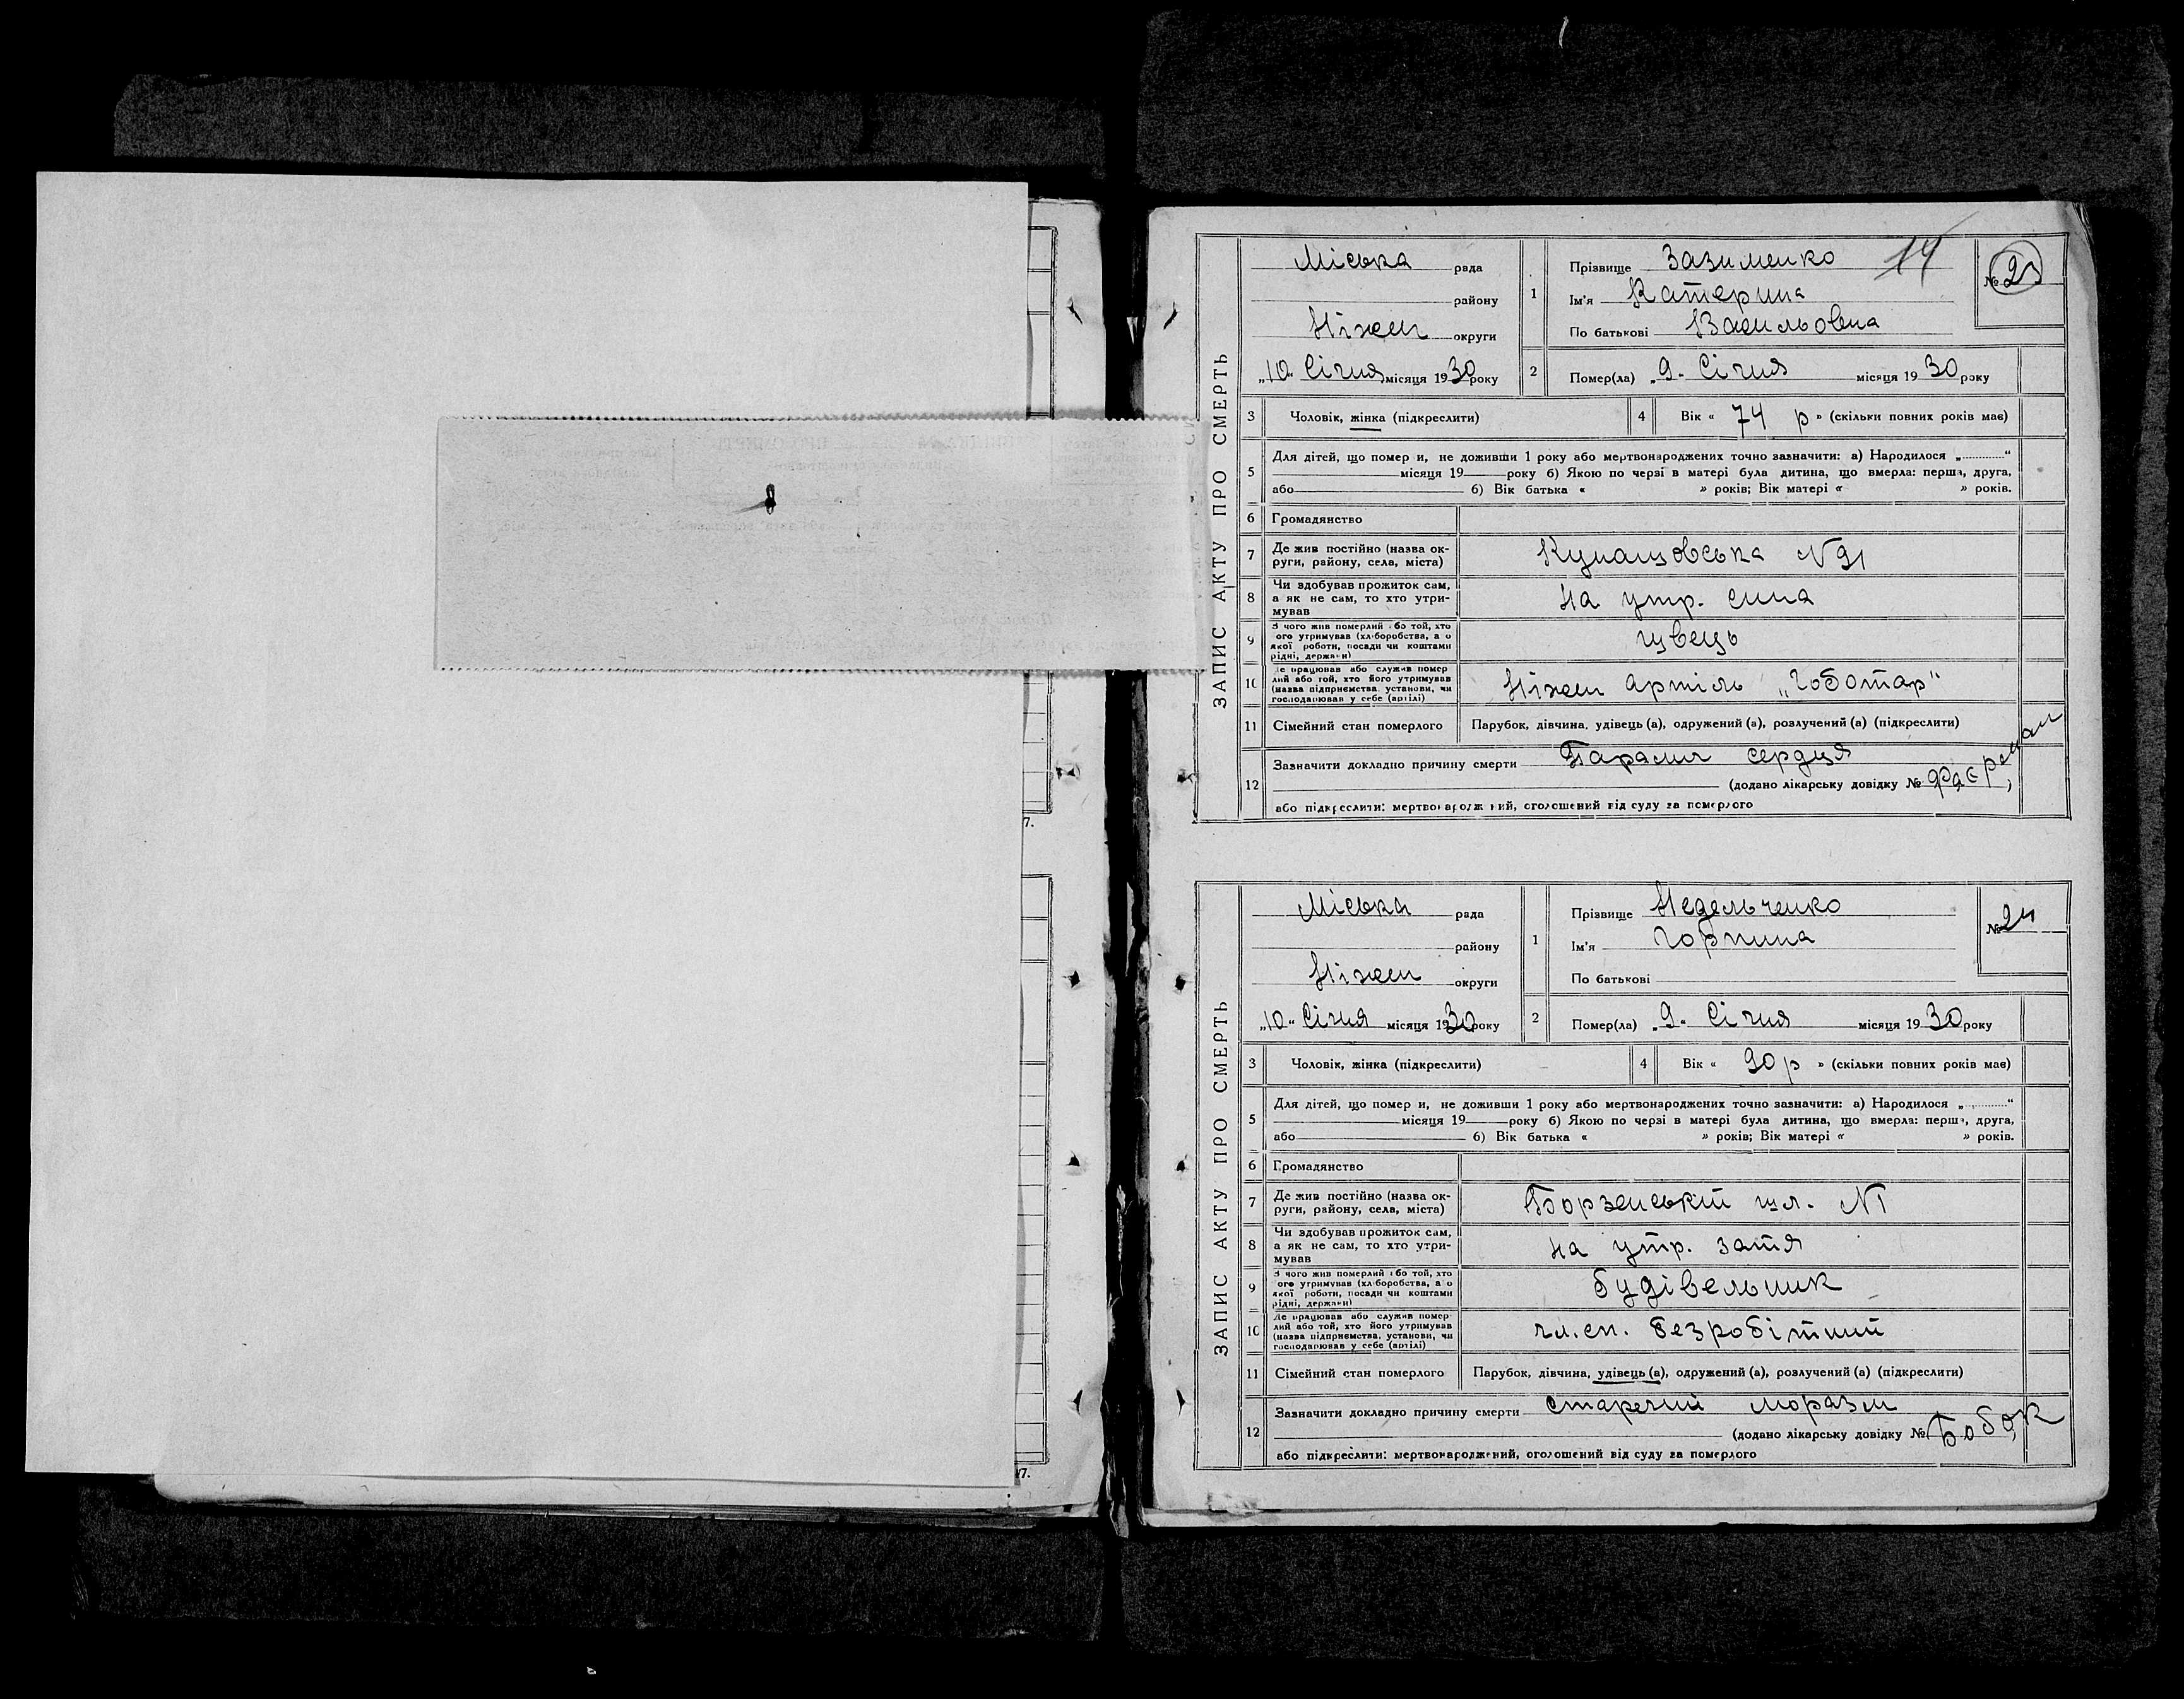 ЗАПИС АКТУ ПРО СМЕРТЬ
Міська рада
району
Ніжен округи
„10“ Січня місяця 1930 року
1
Прізвище Зазименко
Ім'я Катерина
По батькові Васильовна
14
№ 23
2
Помер(ла) „9“ Січня місяця 1930 року
3 Чоловік, жінка (підкреслити)
4 Вік « 74 р » (скільки повних років має)
5 Для дітей, що померли, не доживши 1 року або мертвонароджених точно зазначити: а) Народилося „ “
місяця 19 року б) Якою по черзі в матері була дитина, що вмерла: перша, друга,
або б) Вік батька « » років; Вік матері « » років.
6 Громадянство
7 Де жив постійно (назва округи, району, села, міста) Кунашовська N 91
8 Чи здобував прожиток сам, а як не сам, то хто утримував На утр. сина
9 З чого жив померлий або той, хто його утримував (хліборобства, або якої роботи, посади чи коштами рідні, держави) швець
10 Де працював або служив померлий або той, хто його утримував (назва підприємства, установи, чи господарював у себе (артілі) Ніжен артіль „Чоботар“
11 Сімейний стан померлого Парубок, дівчина, удівець (а), одружений (а), розлучений (а) (підкреслити)
12 Зазначити докладно причину смерти Параліч сердця
(додано лікарську довідку №
або підкреслити: мертвонароджений, оголошений від суду за померлого
7.
ЗАПИС АКТУ ПРО СМЕРТЬ
Міська рада
району
Ніжен округи
„10“ Січня місяця 1930 року
1
Прізвище Недельченко
Ім'я Горпина
По батькові
№ 24
2
Помер(ла) „9“ Січня місяця 1930 року
3 Чоловік, жінка (підкреслити)
4 Вік « 90 р » (скільки повних років має)
5 Для дітей, що померли, не доживши 1 року або мертвонароджених точно зазначити: а) Народилося „ “
місяця 19 року б) Якою по черзі в матері була дитина, що вмерла: перша, друга,
або б) Вік батька « » років; Вік матері « » років.
6 Громадянство
7 Де жив постійно (назва округи, району, села, міста) Борзенський шл. N 1
8 Чи здобував прожиток сам, а як не сам, то хто утримував на утр. затя
9 З чого жив померлий або той, хто його утримував (хліборобства, або якої роботи, посади чи коштами рідні, держави) будівельник
10 Де працював або служив померлий або той, хто його утримував (назва підприємства, установи, чи господарював у себе (артілі) чл. сп. безробітний
11 Сімейний стан померлого Парубок, дівчина, удівець (а), одружений (а), розлучений (а) (підкреслити)
12 Зазначити докладно причину смерти старечий моразм
(додано лікарську довідку № Бобок
або підкреслити: мертвонароджений, оголошений від суду за померлого
7.